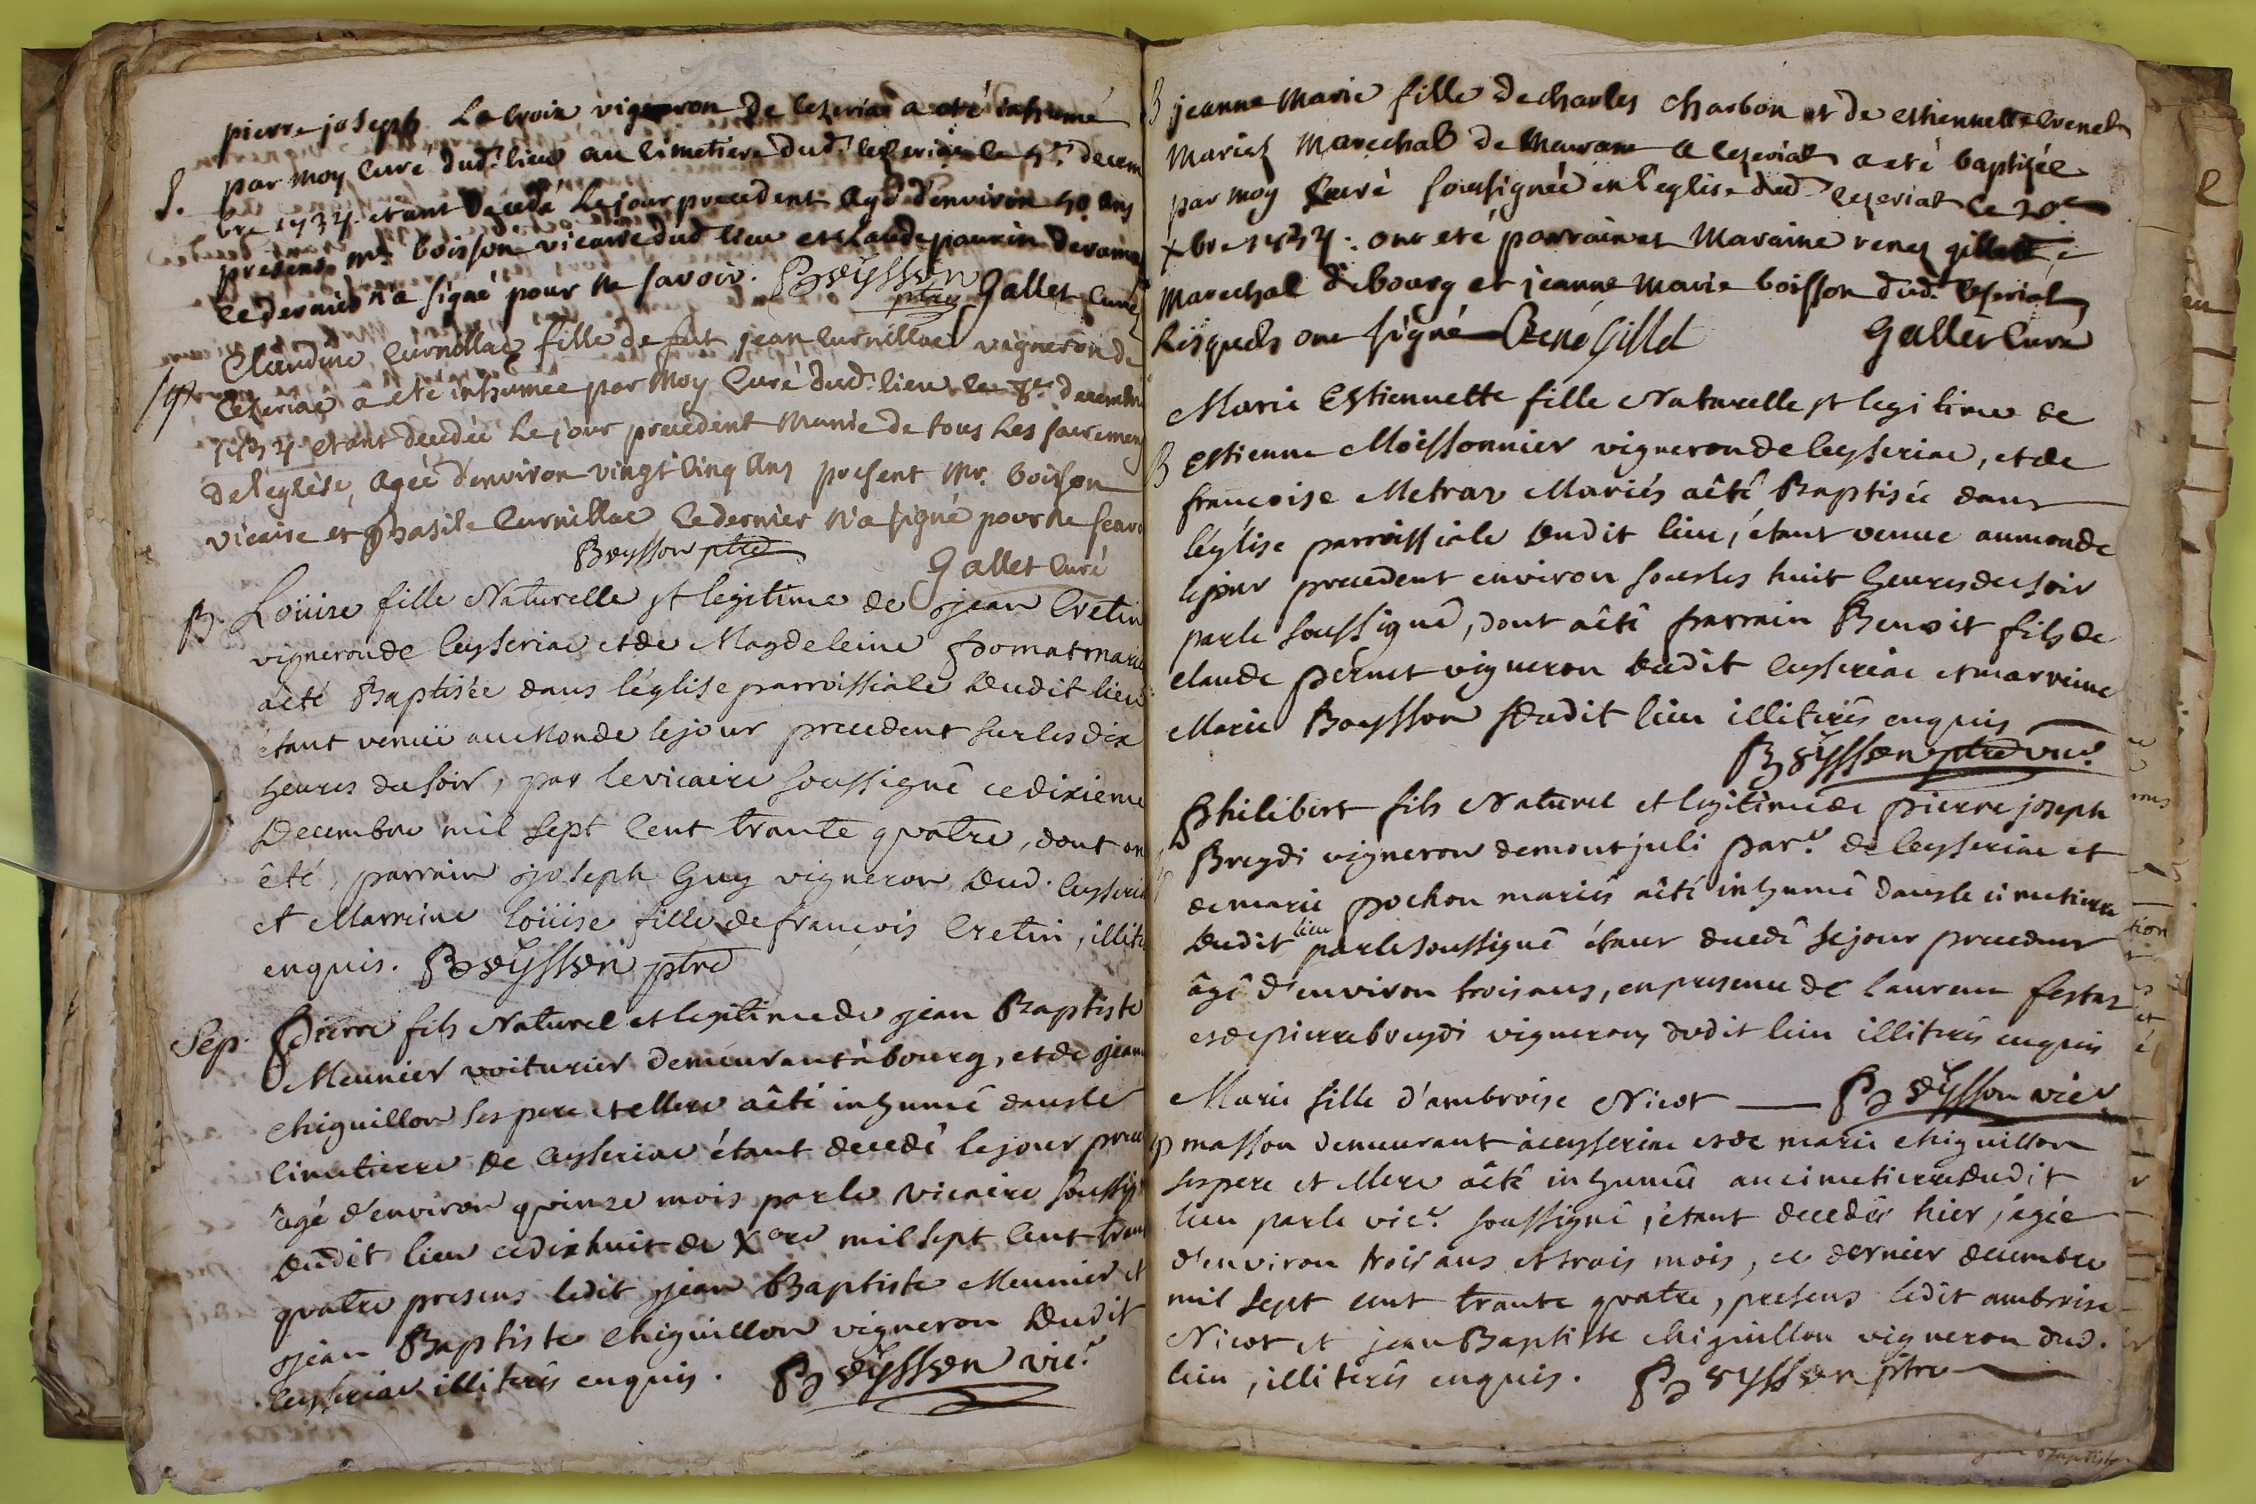 pierre joseph Lacroix vigneron de lezeriat a eté inhumé
S. par moy curé dud. lieu au cimetiere dud. lezeriat le 5e. decem
bre 1734 etant decedé le jour precedent agé d'environ 50 ans
presens mr. boisson vicaire dud lieu et claude
ce dernier n'a signé pour ne savoir. Boÿsson
ptre Gallet curé
Claudine Curnillac fille de fut jean curnillac vigneron de
Sp Cezeriac a eté inhumée par moy curé dud. lieu le 8e. decembre
1734 etant decedée le jour precedent munie de tous les sacremens
de l'eglise, agée d'environ vingt cinq ans present Mr. boisson
vicaire et curnillac ce dernier n'a signé pour ne scavo
Boysson ptre
Gallet curé
B. Loüise fille Naturelle et legitime de jean Cretin
vigneron de Ceyseriac et de Magdeleine marié
àêté Baptisée dans l'église parroissiale dudit lieu
étant venüe au Monde le jour precedent sur les dix
heures du soir, par le vicaire soussigné ce dixieme
Decembre mil sept cent trante quatre, dont on
êté, parrain joseph Guy vigneron dud. Ceyseria
et Marreine loüise fille de françois Cretin, illite
enquis. Boÿsson ptre
Sep. Pierre fils Naturel et legitime de jean Baptiste
Meunier voiturier demeurant à bourg, et de jean
chiguillon ses pere et Mere àêté inhumé dans le
cimetiere de Ceyseriac étant decedé le jour prec
âgé d'environ quinze mois par le vicaire soussig
dudit lieu ce dixhuit de Xbre mil sept cent tran
quatre presens ledit jean Baptiste Meunier et
jean Baptiste chiguillon vigneron dudit
Ceyseriac illiterés enquis. Boÿsson vicre
B jeanne Marie fille de charles charbon et de estiennette
Mariez Marechal de a lezeriat a eté baptisée
par moy Curé soussignée en l'eglise dud. Cezeriat le 20e
xbre 1734. ont eté parrain et Maraine renez gillet
Marechal de bourg et jeanne Marie boisson dud. Ceseriat
lesquels ont signé René Gillet Gallet Curé
Marie Estiennette fille Naturelle et legitime de
B Estienne Moissonnier vigneron de Ceyseriac, et de
françoise Metrar Mariés aêtê Baptisée dans
l'église parroissiale dudit lieu, étant venue au monde
le jour precedent environ sous les huit heures du soir
par le soussigné, dont aêtê parrain Benoit fils de
claude pernet vigneron dudit Ceyseriac et marreine
Marie Boysson dudit lieu illiterés enquis
Boÿsson ptre vicre
Philibert fils Naturel et legitime de pierre joseph
Breydi vigneron de montjuli parre. de Ceyseriac et
de marie pochon mariés aêtê inhumé dans le cimetiere
dudit lieu par le soussigné étant decedé le jour precedent
âgé d'environ trois ans, en presence de laurent festaz
et de pierre breydi vignerons dudit lieu illiterés enquis
Marie fille d'ambroise Nicot — Boÿsson vicre
Sp masson demeurant à ceyseriac et de marie chiguillon
ses pere et Mere aêtê inhumée au cimetiere dudit
lieu par le vicre soussigné, étant decedée hier, agée
d'environ trois ans et trois mois, ce dernier decembre
mil sept cent trante quatre, presens ledit ambroise
Nicot et jean Baptiste chiguillon vigneron dud.
lieu, illiterés enquis. Boÿsson ptre